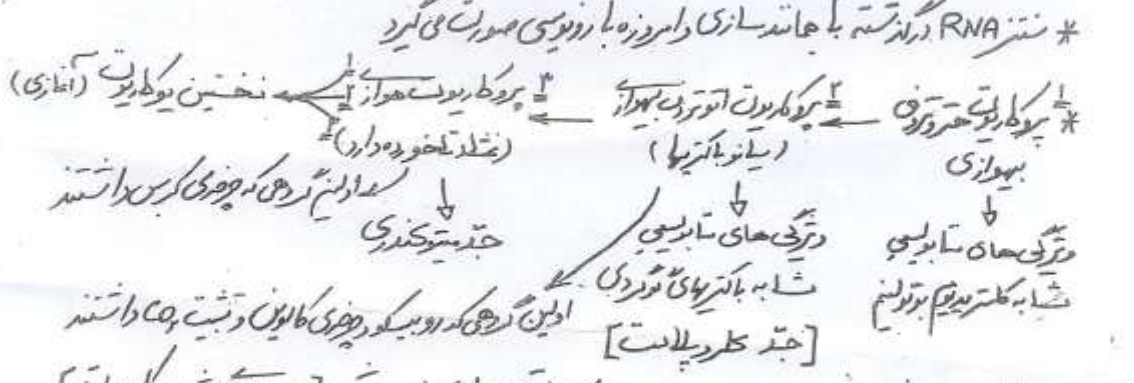 * سنتز RNA درگذشته با همانندسازی و امروزه با رونویسی صورت می گیرد
* ۱ پروکاریوت هتروتروف بیهوازی ← ۲ پروکاریوت اتوتروف بیهوازی (سیانوباکتریها) ← ۳ پروکاریوت هوازی (غشاء تاخورده دارد) ← نخستین یوکاریوت (آغازی)
اولین گروهی که چرخه‌ی کربس داشتند
ویژگی های متابولیسمی مشابه کلستریدیوم بوتولینم
ویژگی های متابولیسمی مشابه باکتریهای گوگردی
[جدّ کلروپلاست]
جدّ میتوکندری
اولین گروهی که روبیسکو و چرخه‌ی کالوین و تثبیت داشتند